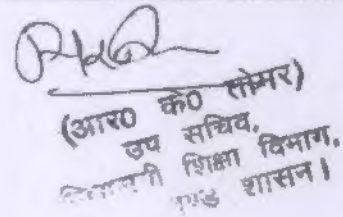 (आर० के० तोमर)
उप सचिव,
शिक्षा विभाग,
शासन।